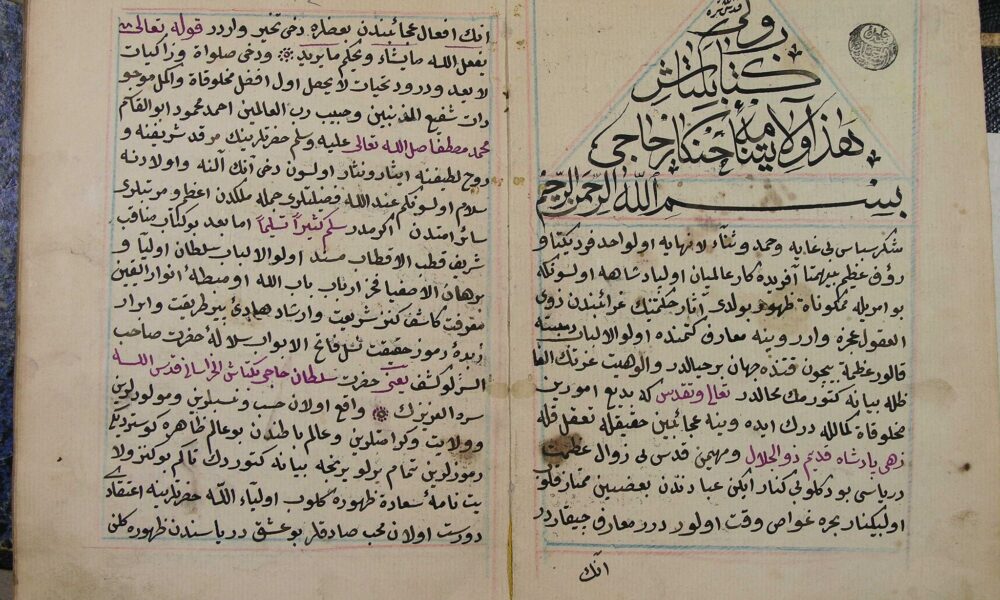 قدس سره
ولى
كتاش
هذا ولايتنامه خنكار حاجى
بسم الله الرحمن الرحيم
شكر سپاس بى غايه وحمد وثنآء لا نهايه اول واحد فرد يكتا و
رؤف عظيم بيهمتا آفريده كار عالميان اولياد شاهه اولسونكه
بو امريله مكوناة ظهوره بولدى آثار حكمتك غرائبندن ذوى
العقول عجزه واردر وينه معارف كتمنده اولو الالباب
قالور عظمة بيچون قتنده جهان بر حبالدر والوهيت عزتك
ظله بيانه كتورمك محالدر تعالى وتقدس كه بديع امورين
مخلوقاة كمالله درك ايده وينه عجائبين حقيقله تعقل قله
زهى پادشاه قديم ذو الجلال ومهيمن قدس بى زوال عظمت
درياسى بودكلو بى كنار ايكن عبادندن بعضيين ممتاز قلوب
اول بيكنار بحره غواص وقت اولور درر معارف چيقاردر
انك
انك افعال عجائبندن بعضلره دخى تحير واردر قوله تعالى
يفعل الله ما يشاء ويحكم ما يريد ودخى صلواة وزاكيات
لا يعد ودرود تحيات لا يحصل اول افضل مخلوقاة واكمل موجو
دات شفيع المذنبين وحبيب رب العالمين احمد محمود ابو القاسم
محمد مصطفا صل الله تعالى عليه وسلم حضرتلرينك مرقد شريفنه و
روح لطيفنه ايثار ونثار اولسون دخى آنك آلنه واولادنه
سلام اولسونكم عند الله فضيلتلرى جمله ملكدن اعظم ومرتبلرى
سائر امتدن اكرمدر سلم كثيراً تسليماً اما بعد بو كتاب مناقب
شريف قطب الاقطاب مسند اولو الالباب سلطان اوليآ و
برهان الاصفيا فخر ارباب باب الله اوسبطه انوار اليقين
معرفت كاشف كنوز شريعت وارشاد هادئ پير طريقت وابرار
زبدۀ رموز حقيقت فاتح الابواب سلالۀ حضرت صاحب
السر لو كشف يعنى حضرت سلطان حاجى بكتاش الخراسانى قدس الله
سره العزيزك واقع اولان حسب ونسبلرين ومولودلرين
وولايت وكرامتلرين وعالم باطندن بو عالم ظاهره كوستردكى
رموزلرين تمام يرلو يرنجه بيانه كتوردك تاكم بو كنز ولا
يت نامۀ سعادة ظهوره كلوب اولياء الله حضرتلرينه اعتقاد
درست اولان محب صادقلر بو عشق درياسندن ظهوره كلن